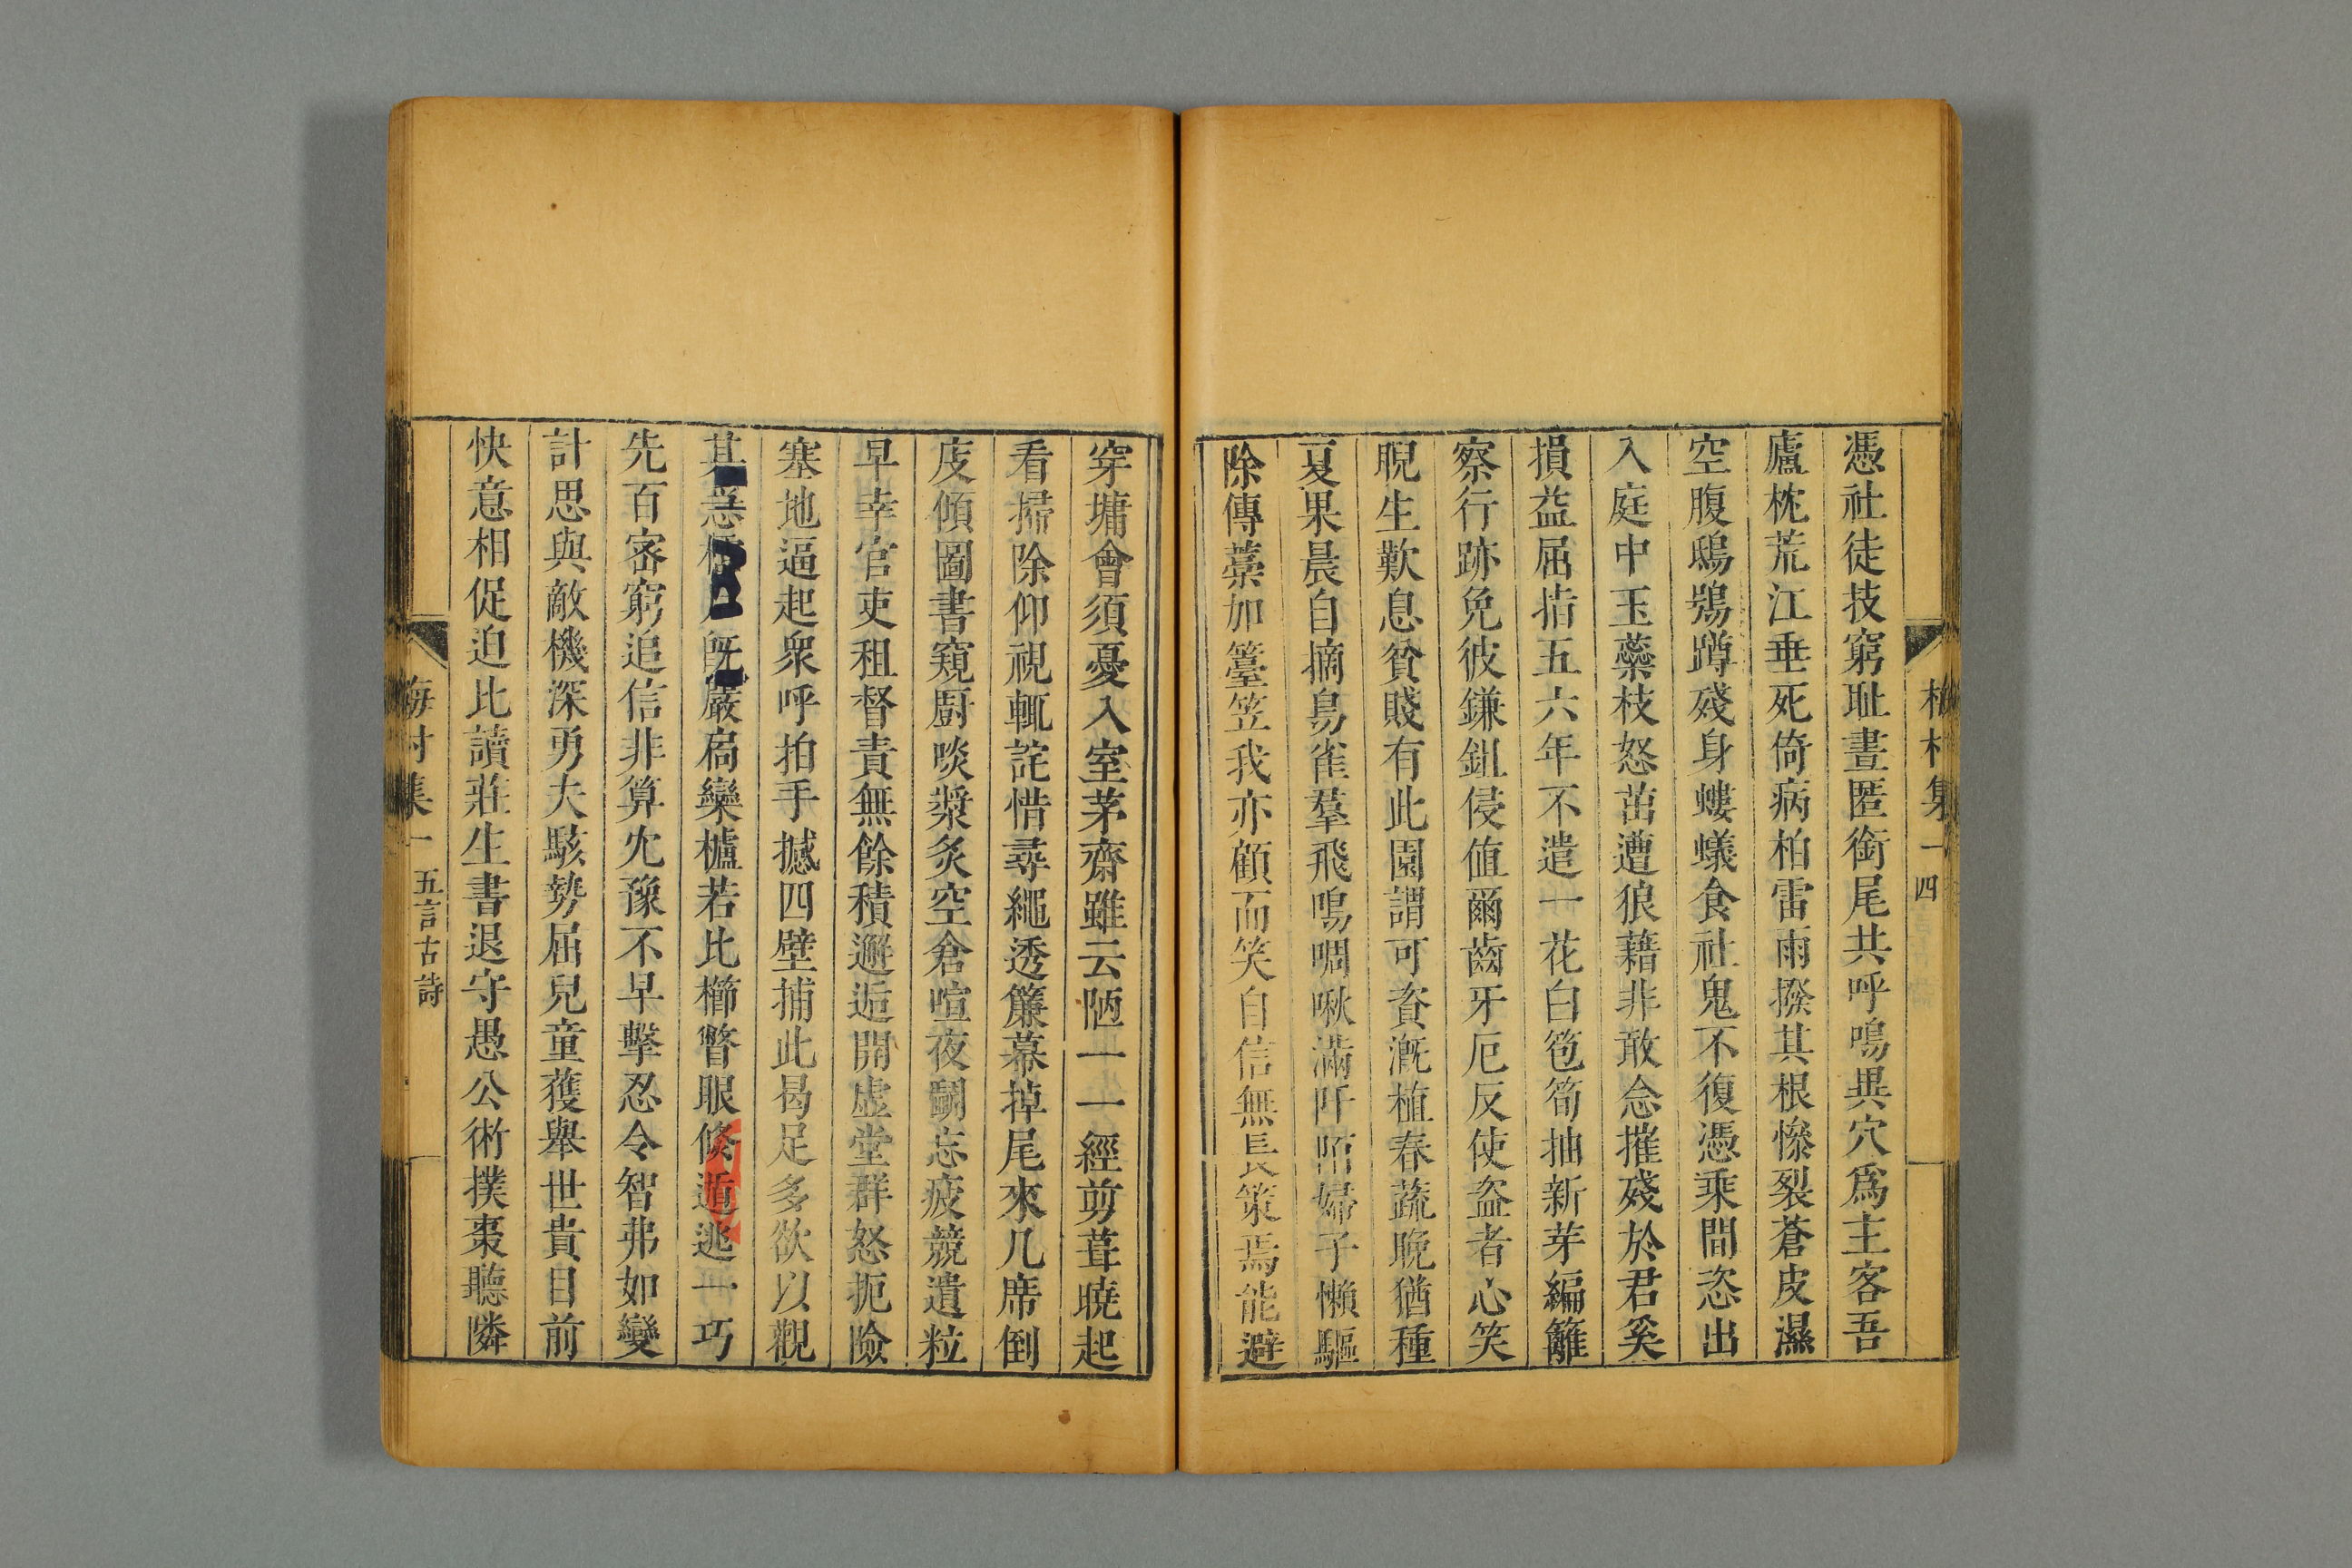 梅村集一 四
憑社徒技窮耻晝匿銜尾共呼鳴異穴爲主客吾
廬枕荒江垂死倚病柏雷雨撥其根慘裂蒼皮濕
空腹鴟鴞蹲殘身螻蟻食社鬼不復憑乘間恣出
入庭中玉蘂枝怒茁遭狼藉非敢念摧殘於君奚
損益屈指五六年不遣一花白苞筍抽新芽編籬
察行跡免彼鎌鉏侵値爾齒牙厄反使盜者心笑
睨生歎息貧賤有此園謂可資漑植春蔬晚猶種
夏果晨自摘鳥雀羣飛鳴啁啾滿阡陌婦子懶驅
除傳藁加簦笠我亦顧而笑自信無長策焉能避
穿墉會須憂入室茅齋雖云陋一一經剪葺曉起
看掃除仰視輒詫惜尋繩透簾幕掉尾來几席倒
庋傾圖書窺廚啖漿炙空倉喧夜鬭忘疲競遺粒
早幸官吏租督責無餘積邂逅開虛堂群怒扼險
塞地逼起衆呼拍手撼四壁捕此曷足多欲以觀
其 旣嚴扃欒櫨若比櫛瞥眼倏遁逃一巧
先百密窮追信非算尤豫不早擊忍令智弗如變
計思與敵機深勇夫駭勢屈兒童獲舉世貴目前
快意相促迫比讀莊生書退守愚公術撲棗聽隣
梅村集一 五言古詩